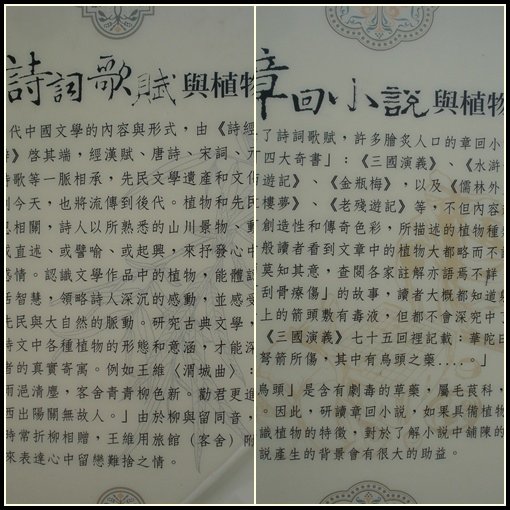 詩詞歌賦與植物
代中國文學的內容與形式，由《詩經
啓其端，經漢賦、唐詩、宋詞、元
詩歌等一脈相承，先民文學遺產和文化
到今天，也將流傳到後代。植物和先民
息相關，詩人以所熟悉的山川景物、動
或直述、或譬喻、或起興，來抒發心中
感情。認識文學作品中的植物，能體認
活智慧，領略詩人深沉的感動，並感受
先民與大自然的脈動。研究古典文學，
詩文中各種植物的形態和意涵，才能深
者的真實寄寓。例如王維〈渭城曲〉：
雨浥清塵，客舍青青柳色新。勸君更進
西出陽關無故人。」由於柳與留同音，
時常折柳相贈，王維用旅館（客舍）附
來表達心中留戀難捨之情。
章回小說與植物
了詩詞歌賦，許多膾炙人口的章回小
四大奇書」：《三國演義》、《水滸
遊記》、《金瓶梅》，以及《儒林外
樓夢》、《老殘遊記》等，不但內容
創造性和傳奇色彩，所描述的植物種
般讀者看到文章中的植物大都略而不
莫知其意，查閱各家註解亦語焉不詳
刮骨療傷」的故事，讀者大概都知道
上的箭頭敷有毒液，但都不會深究中
《三國演義》七十五回裡記載：華陀曰
弩箭所傷，其中有烏頭之藥．．．．．。」
烏頭」是含有劇毒的草藥，屬毛茛科，
。因此，研讀章回小說，如果具備植物
識植物的特徵，對於了解小說中舖陳的
說產生的背景會有很大的助益。